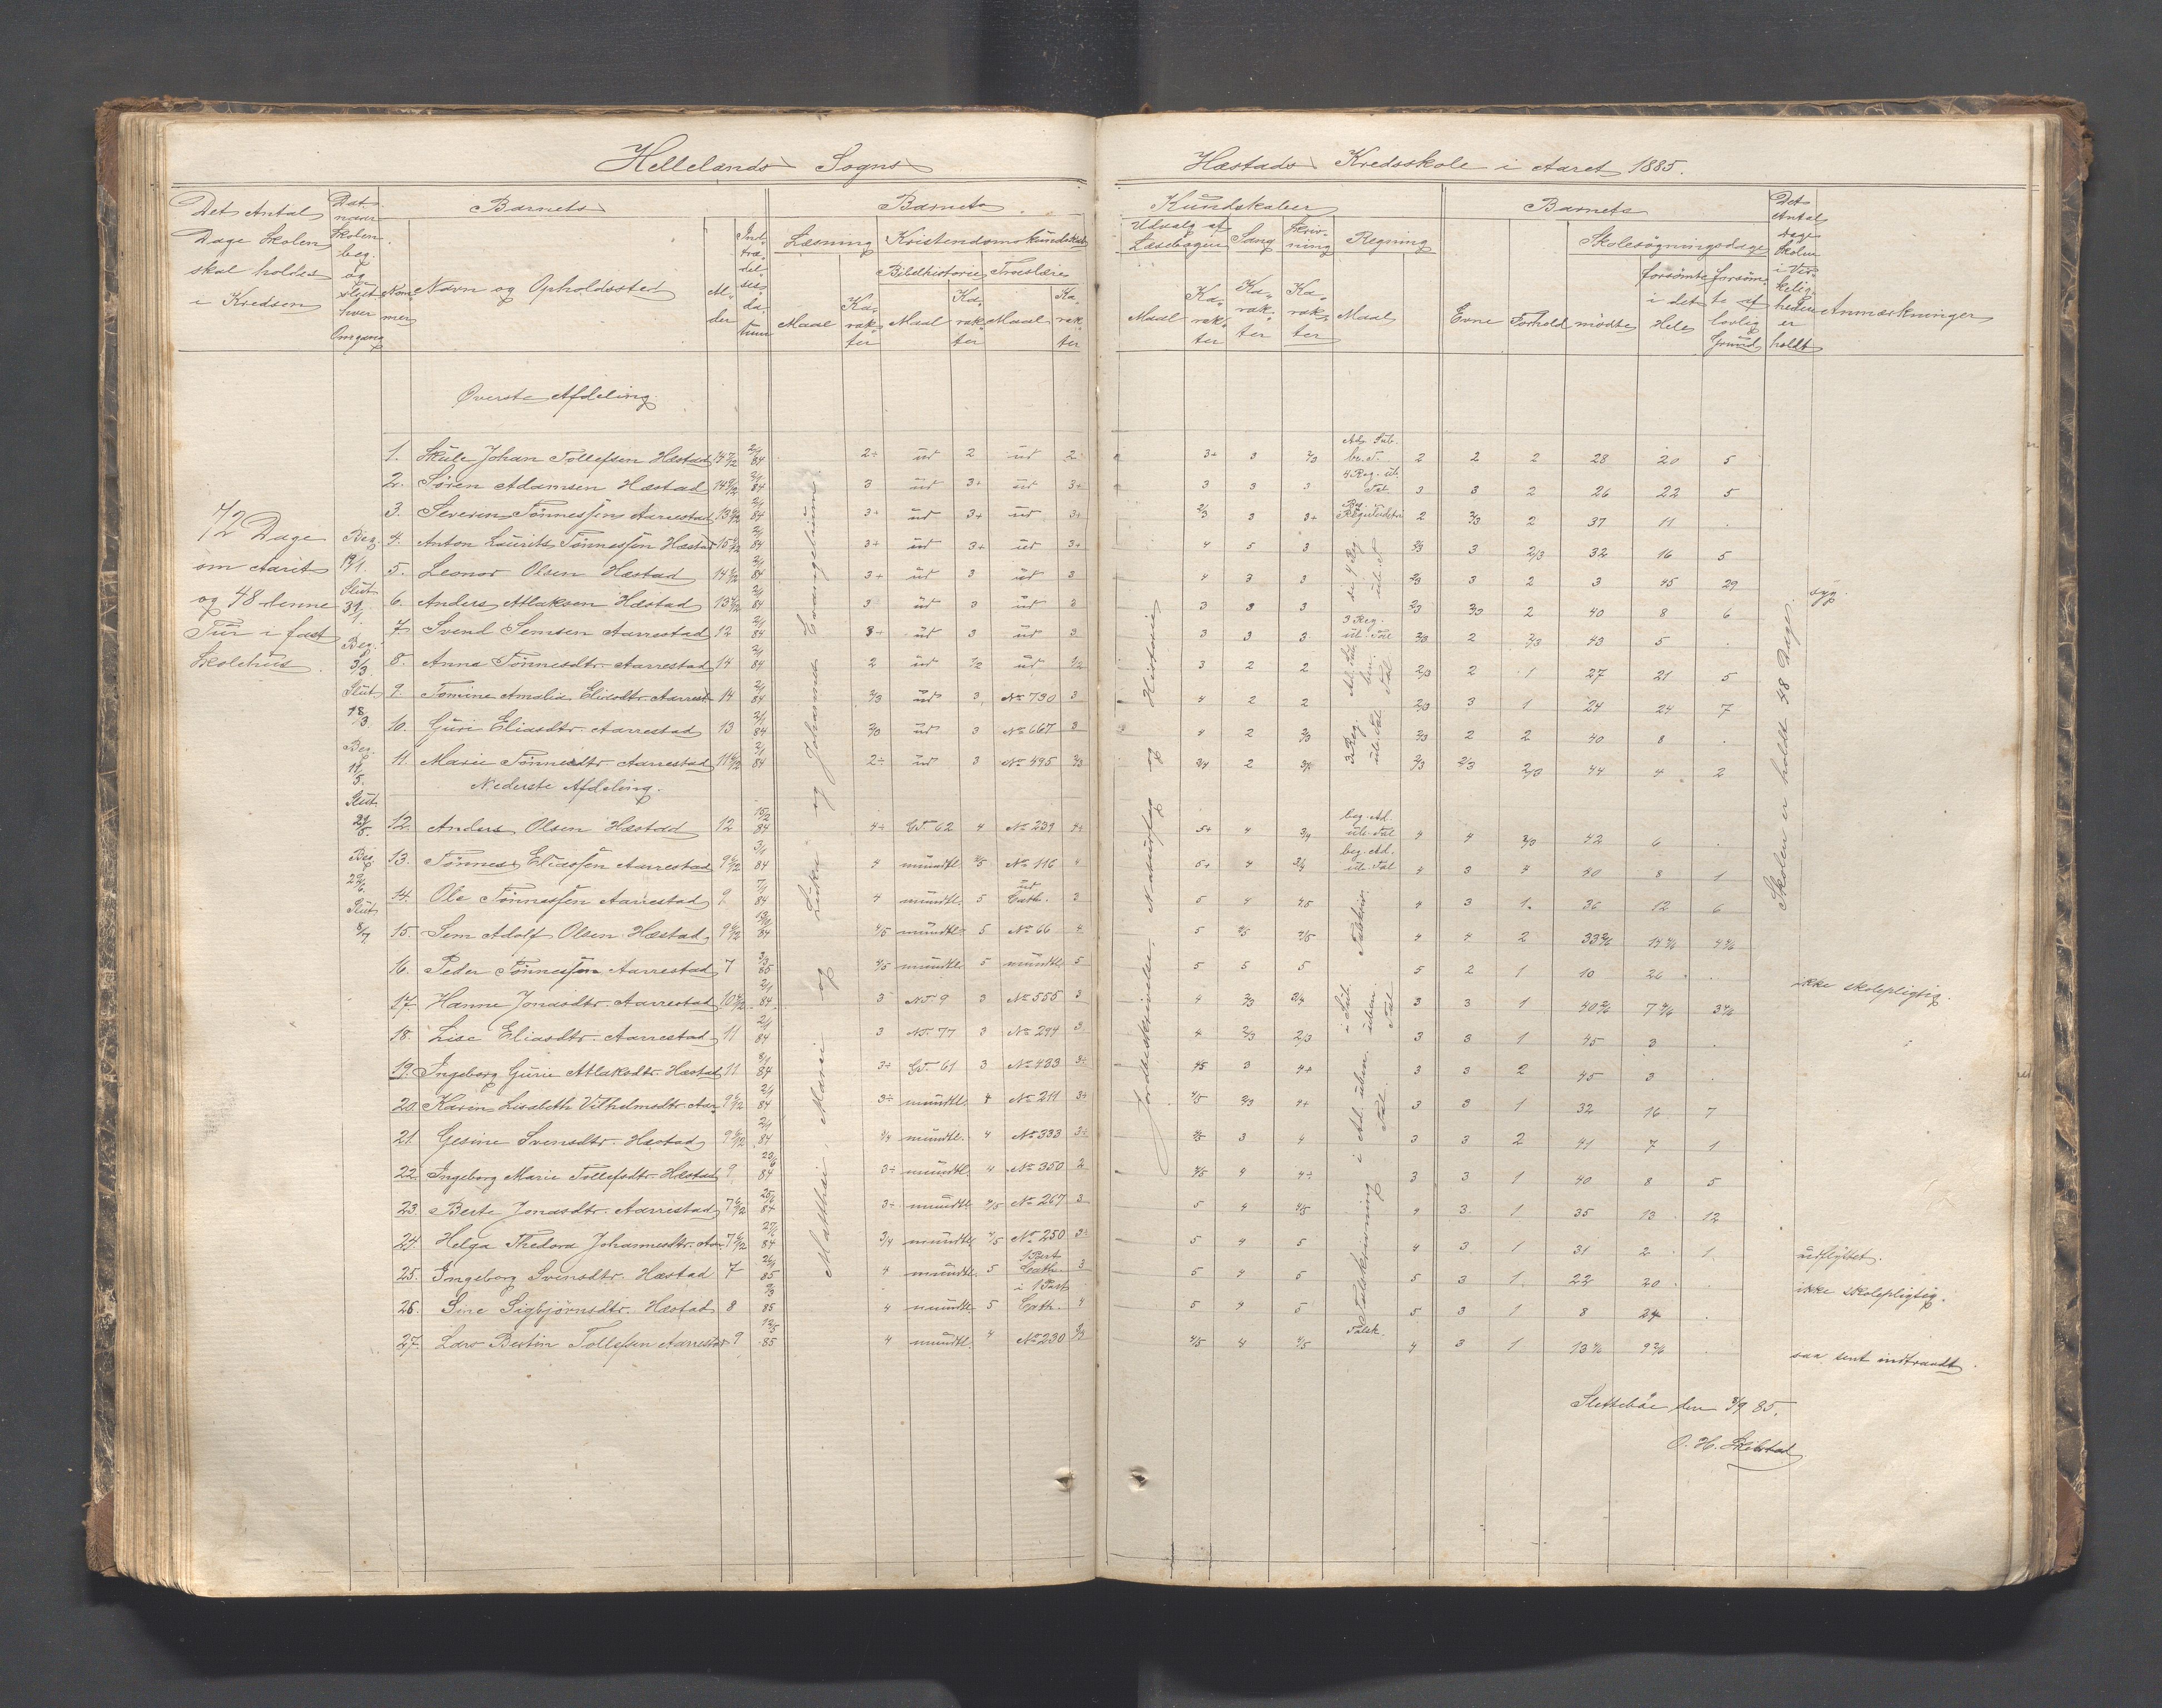 Hellelands Sogns
Hæstads Kredsskole i Aaret 1885.
Det Antal Dage Skolen skal holdes i Kredsen
Dat. naar Skolen beg. og slut hver Omgang
Barnets
Nummer
Navn og Opholdssted
Alder
Indtrædelsesdatum
Barnets
Læsning
Kristendomskundskab
Bibelhistorie
Troeslære
Maal
Karakter
Maal
Karakter
Maal
Karakter
Kundskaber
Udvalg af Læsebogen
Sang
Skrivning
Regning
Maal
Karakter
Karakter
Karakter
Maal
Barnets
Evne
Forhold
Skolesøgningsdage
mødte
forsømte i det Hele
forsømte af lovlig Grund
Det Antal Dage Skolen i Virkeligheden er holdt
Anmærkninger
Øverste Afdeling.
72 Dage
om Aaret
og 48 denne
Tur i fast
Skolehus.
Beg. 19/1.
Slut 31/1.
Beg. 3/3
Slut 18/3.
Beg. 11/5.
Slut
Beg.
Slut 8/7
Lukas og Johannes Evangelium.
Matthæi, Marci og
Jordbeskrivelse. Naturfag og Historie
Skolen er holdt 48 Dage.
1. Skule Johan Tollefsen Hæstad 14 7/12 2/1 84 2÷ ud 2 ud 2 3+ 3 2/3 2 2 2 28 20 5
2. Søren Adamsen Hæstad 2/1 84 3 ud 3+ ud 3+ 3 3 3 4 Reg. ub. Tal 3 3 2 26 22 5
3. Severin Tønnessen Aarrestad 2/1 84 3+ ud 3+ ud 3+ 2/3 3 3+ 2 2/3 2 37 11 .
4. Anton Laurits Tønnessen Hæstad 2/1 84 3+ ud 3+ ud 3+ 4 5 3 2/3 3 2/3 32 16 5
5. Leonor Olsen Hæstad 2/1 84 3+ ud 3 ud 3 4 3 3 2/3 3 2 3 45 29 syg.
6. Anders Atlaksen Hæstad 2/1 84 3 ud 3 ud 3 3 3 3 2/3 2/3 2 40 8 6
7. Svend Semsen Aarrestad 12 2/1 84 3+ ud 3 ud 3 3 3 3 3 Reg. ub. Tal 2/3 2 2/3 43 5 .
8. Anna Tønnesdtr. Aarrestad 14 2/1 84 2 ud 1/2 ud 1/2 3 2 2 2/3 2 1 27 21 5
9. Tomine Amalia Eliasdtr. Aarrest. 14 2/1 84 2/3 ud 3 No 730 3 4 2 2 2/3 3 1 24 24 7
10. Guri Eliasdtr. Aarrestad 13 2/1 84 2/3 ud 3 No 667 3 4 2 2/3 2/3 2 2 40 8 .
11. Marie Tønnesdtr. Aarrestad 2/1 84 2÷ ud 3 No 495 2/3 3/4 2 2/3 2/3 2/3 44 4 2
Nederste Afdeling.
12. Anders Olsen Hæstad 12 15/2 84 4+ G.T. 62 4 No 239 4+ 5+ 4 3/4 beg. Ad. ub. Tal 4 4 2/3 42 6 .
13. Tønnes Eliassen Aarrestad 9 6/12 3/1 84 4 mündtl. 4/5 No 116 4 5+ 4 3/4 beg. Ad. ub. Tal 4 3 4 40 8 1
14. Ole Tønnessen Aarrestad 9 7/1 84 4 mundtl. 5 ud Cath. 3 5 4 4/5 4 3 1 36 12 6
15. Sem Adolf Olsen Hæstad 84 4/5 mundtl. 5 No 66 4 5 4/5 4/5 4 4 2
16. Peder Tønnessen Aarrestad 7 3/3 85 4/5 mundtl. 5 mundtl. 5 5 5 5 5 2 1 10 26 . ikke skolepligtig.
17. Hanne Jonasdtr. Aarrestad 2/1 84 3 N.T. 9 3 No 555 3 4 2/3 3/4 3 3 1
18. Lise Eliasdtr. Aarrestad 11 2/1 84 3 N.T. 77 3 No 294 3 4 2/3 2/3 3 3 1 45 3 .
19. Ingeborg Gurie Atlaksdtr. Hæstad 11 8/1 84 3÷ G.T. 61 3 No 483 3÷ 4/5 3 4+ 3 3 2 45 3 .
20. Karin Lisabeth Vilhelmsdtr. Aar. 9 6/12 2/1 84 3÷ mundtl. 4 No 211 3÷ 4/5 2/3 4+ 3 3 1 32 16 7
21. Gesine Svensdtr. Hæstad 9 6/12 2/1 84 3/4 mundtl. 4 No 333 3÷ 4/5 3 4 3 3 2 41 7 1
22. Ingeborg Marie Tollefsdtr. Hæstad 9 84 3÷ mundtl. 4 No 350 2 4/5 4 4÷ 3 3 1 40 8 5
23. Berte Jonasdtr. Aarrestad 7 6/12 84 3÷ mundtl. 4/5 No 267 3 5 4 4/5 4 3 1 35 13 12
24. Helga Thedora Johannesdtr. Aar. 7 6/12 84 3/4 mundtl. 4/5 No 250 3÷ 5 4 5 4 3 1 31 2 1 udflyttet.
25. Ingeborg Svensdtr. Hæstad 7 85 4 mundtl. 5 1 Part Cath. 3 5 4 5 5 3 1 22 20 . ikke skolepligtig.
26. Sine Sigbjørnsdtr. Hæstad 8 85 4 mundtl. 5 i 1 Part Cath. 4 5 4 5 5 3 1 8 24 .
27. Lars Bertin Tollefsen Aarrestad 9 12/5 85 4 mundtl. 4 No 230 3/4 4/5 4 4/5 Talsk. 4 3 1 . saa sent indtraadt.
Slettebøe den 3/9 85.
O. H. Skibstad